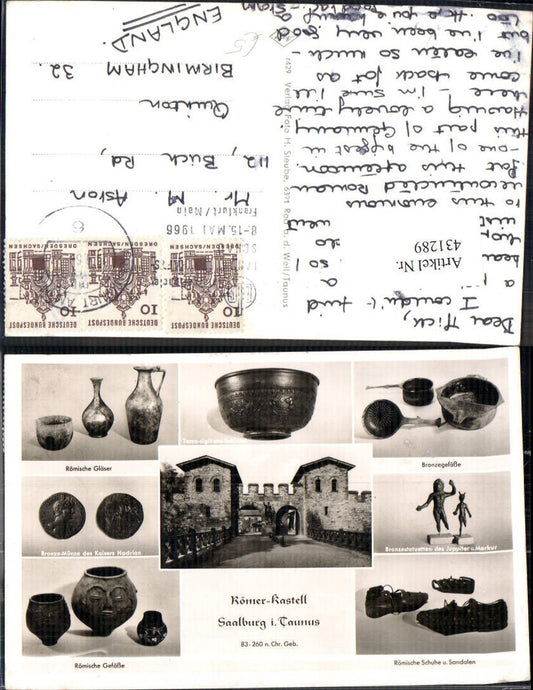 Dear Mick,
I couldn't find
a
a p
so I
bear
so
hor
went
visit
to this enormous
reconstructed Roman
fort this afternoon
- one of the biggest in
this part of Germany.
Having a lovely time
here - I'm sure I'll
come back fat as
I've eaten so much -
but I've been very good
too. Hope you're having a
Artikel Nr.
431289
r429 Verlag Foto H. Sleube, 6391 Rod b. d. Weil/Taunus
£5
8-15. MAI 1966
Frankfurt/Main
10
DEUTSCHE BUNDESPOST
DRESDEN/SACHSEN
10
DEUTSCHE BUNDESPOST
DRESDEN/SACHSEN
10
DEUTSCHE BUNDESPOST
Mr. M. Aston
112, Birch Rd,
Quinton
BIRMINGHAM 32.
ENGLAND.
Römische Gläser
Terra-sigillata-Schüssel
Bronzegefäße
Bronze-Münze des Kaisers Hadrian
Bronzestatuetten des Juppiter u. Merkur
Römer-Kastell
Saalburg i. Taunus
83-260 n. Chr. Geb.
Römische Gefäße
Römische Schuhe u. Sandalen